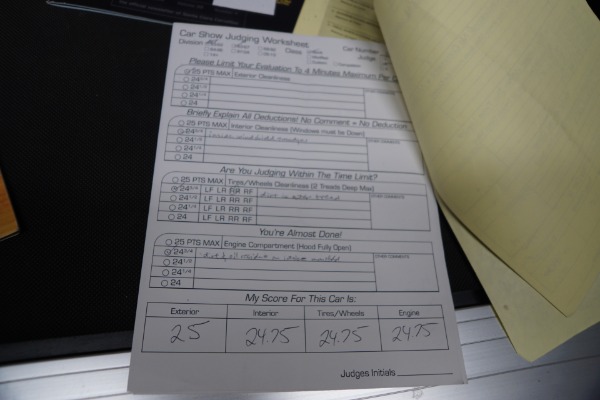 Car Show Judging Worksheet
Division
Class
Car Number
Judge
Please Limit Your Evaluation To 4 Minutes Maximum Per
25 PTS MAX Exterior Cleanliness
24 3/4
24 1/2
24 1/4
24
Briefly Explain All Deductions! No Comment = No Deduction
25 PTS MAX Interior Cleanliness (Windows must be Down)
24 3/4
24 1/2 OTHER COMMENTS
24 1/4
24
Are You Judging Within The Time Limit?
25 PTS MAX Tires/Wheels Cleanliness (2 Treads Deep Max)
24 3/4 LF LR RR RF
24 1/2 LF LR RR RF OTHER COMMENTS
24 1/4 LF LR RR RF
24 LF LR RR RF
You're Almost Done!
25 PTS MAX Engine Compartment (Hood Fully Open)
24 3/4 OTHER COMMENTS
24 1/2
24 1/4
24
My Score For This Car Is:
Exterior Interior Tires/Wheels Engine
25 24.75 24.75 24.75
Judges Initials